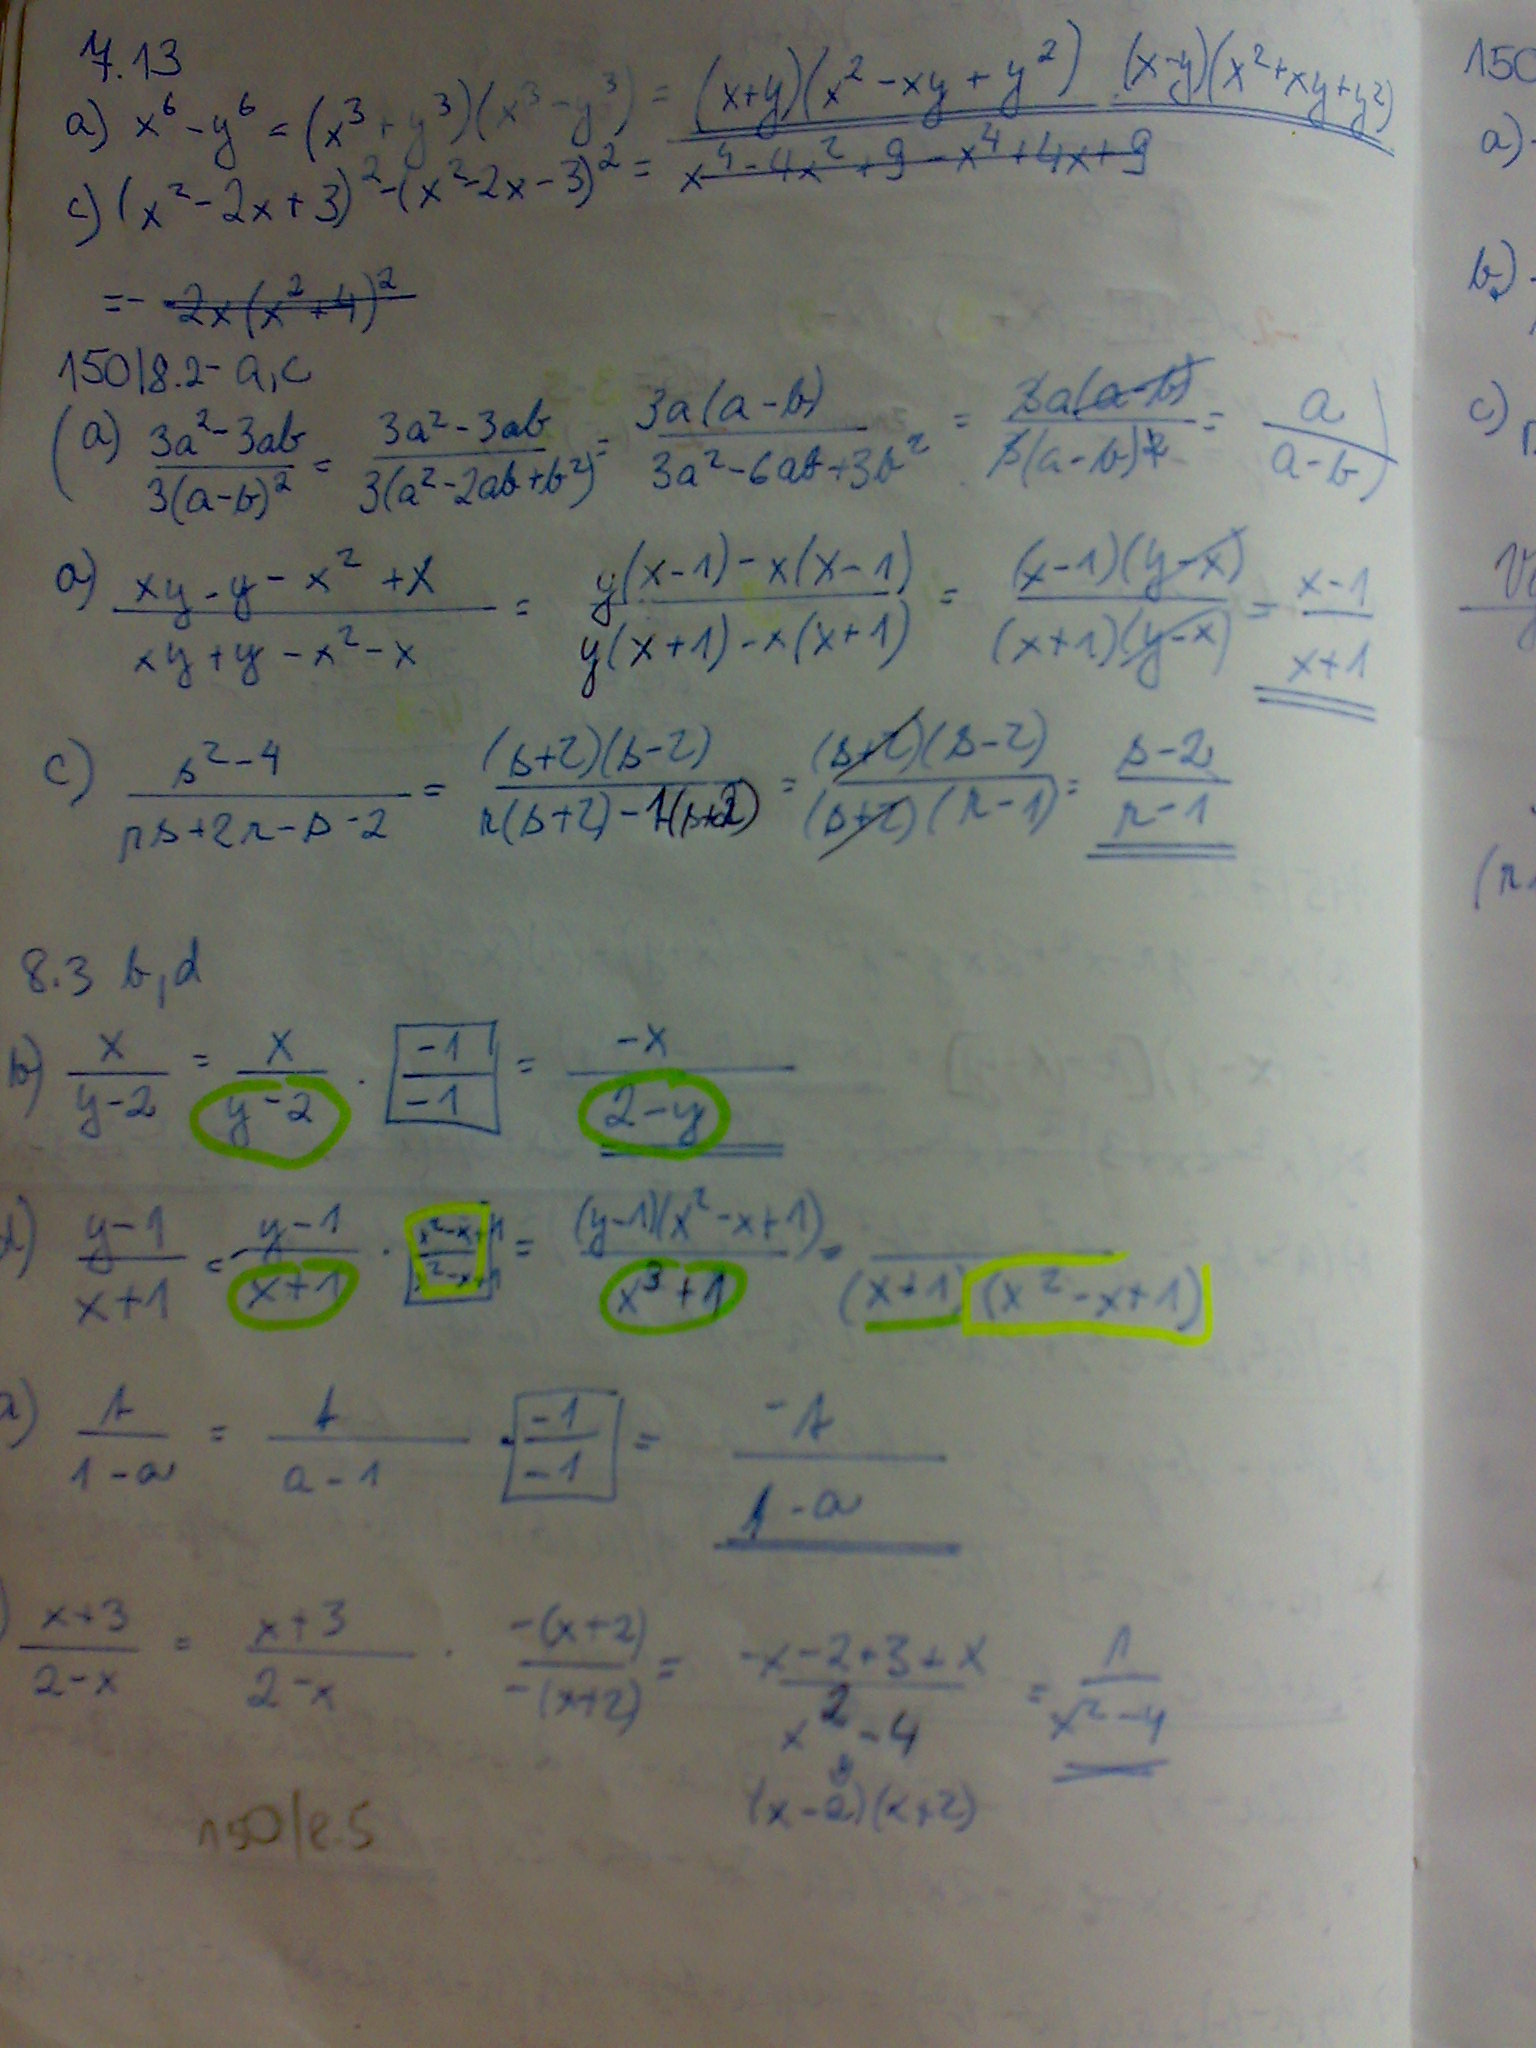 7.13
a) x⁶ - y⁶ = (x³ + y³)(x³ - y³) = (x+y)(x² - xy + y²) (x-y)(x² + xy + y²)
c) (x² - 2x + 3)² - (x² - 2x - 3)² = x⁴ - 4x² + 9 - x⁴ + 4x + 9
= - 2x(x² + 4)²
150/8.2 - a, c
(a) (3a² - 3ab)/(3(a-b)²) = (3a² - 3ab)/(3(a² - 2ab + b²)) = (3a(a-b))/(3a² - 6ab + 3b²) = (3a(a-b))/(3(a-b)²) = a/(a-b))
a) (xy - y - x² + x)/(xy + y - x² - x) = (y(x-1) - x(x-1))/(y(x+1) - x(x+1)) = ((x-1)(y-x))/((x+1)(y-x)) = (x-1)/(x+1)
c) (s² - 4)/(rs + 2r - s - 2) = ((s+2)(s-2))/(r(s+2) - 1(s+2)) = ((s+2)(s-2))/((s+2)(r-1)) = (s-2)/(r-1)
8.3 b, d
b) x/(y-2) = x/(y-2) · (-1)/(-1) = -x/(2-y)
d) (y-1)/(x+1) = (y-1)/(x+1) · (x² - x + 1)/(x² - x + 1) = ((y-1)(x² - x + 1))/(x³ + 1) = /((x+1)(x² - x + 1))
1/(1-a) = 1/(a-1) · (-1)/(-1) = -1/(1-a)
) (x+3)/(2-x) = (x+3)/(2-x) · (-(x+2))/(-(x+2)) = (-x - 2 + 3 + x)/(x² - 4) = 1/(x² - 4)
(x-2)(x+2)
150/8.5
150
a)
b)
c)